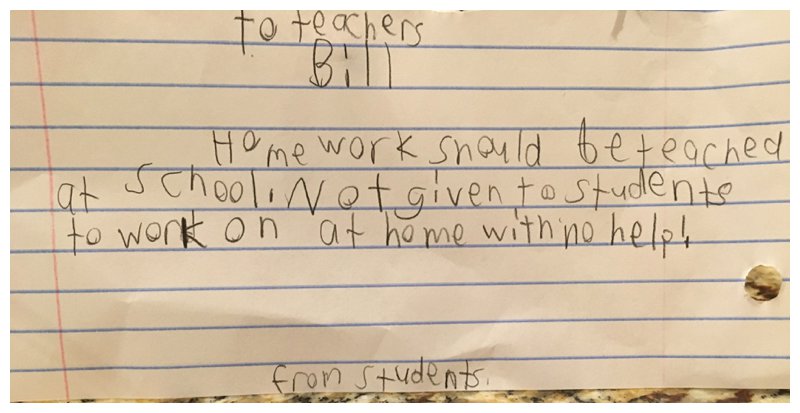 to teachers
Bill
Homework should be teached
at school. Not given to students
to work on at home with no help!
from students.